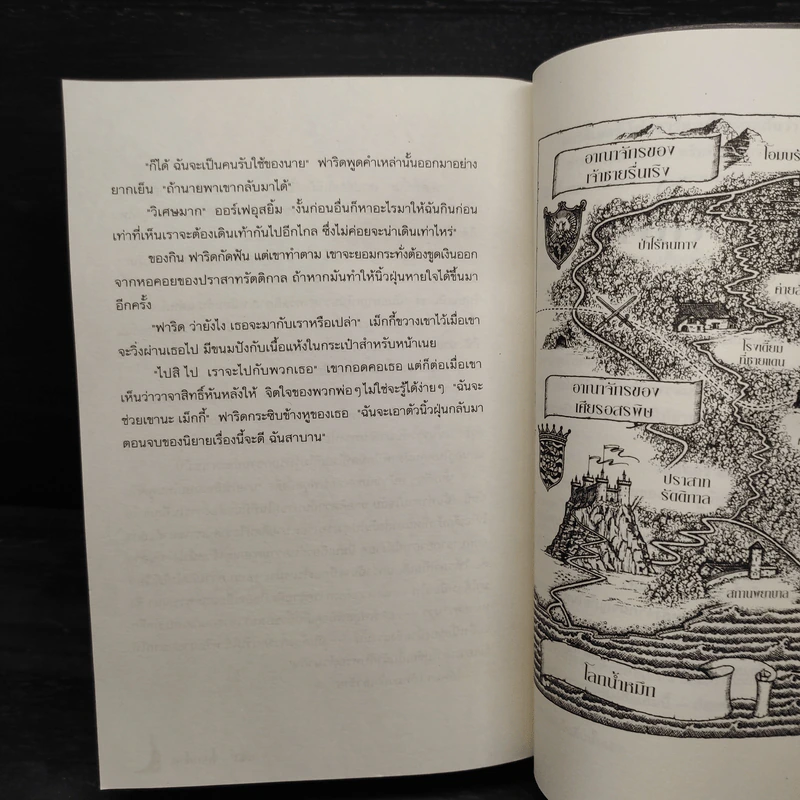 "ก็ได้ ฉันจะเป็นคนรับใช้ของนาย" ฟาริดพูดคำเหล่านั้นออกมาอย่าง
ยากเย็น "ถ้านายพาเขากลับมาได้"
"วิเศษมาก" ออร์เฟอุสยิ้ม "งั้นก่อนอื่นก็หาอะไรมาให้ฉันกินก่อน
เท่าที่เห็นเราจะต้องเดินเท้ากันไปอีกไกล ซึ่งไม่ค่อยจะน่าเดินเท่าไหร่"
ของกิน ฟาริดกัดฟัน แต่เขาทำตาม เขาจะยอมกระทั่งต้องขูดเงินออก
จากหอคอยของปราสาทรัตติกาล ถ้าหากมันทำให้นิ้วฝุ่นหายใจได้ขึ้นมา
อีกครั้ง
"ฟาริด ว่ายังไง เธอจะมากับเราหรือเปล่า" เม็กกี้ขวางเขาไว้เมื่อเขา
จะวิ่งผ่านเธอไป มีขนมปังกับเนื้อแห้งในกระเป๋าสำหรับหน้าเนย
"ไปสิ ไป เราจะไปกับพวกเธอ" เขากอดคอเธอ แต่ก็ต่อเมื่อเขา
เห็นว่าวาจาสิทธิ์หันหลังให้ จิตใจของพวกพ่อๆ ไม่ใช่จะรู้ได้ง่ายๆ "ฉันจะ
ช่วยเขานะ เม็กกี้" ฟาริดกระซิบข้างหูของเธอ "ฉันจะเอาตัวนิ้วฝุ่นกลับมา
ตอนจบของนิยายเรื่องนี้จะดี ฉันสาบาน"
อาณาจักรของ
เจ้าชายรื่นเริง
ป่าไร้หนทาง
โรงเตี๊ยม
ที่ชายแดน
อาณาจักรของ
เศียรอสรพิษ
ปราสาท
รัตติกาล
สถานพยาบาล
โลกน้ำหมึก